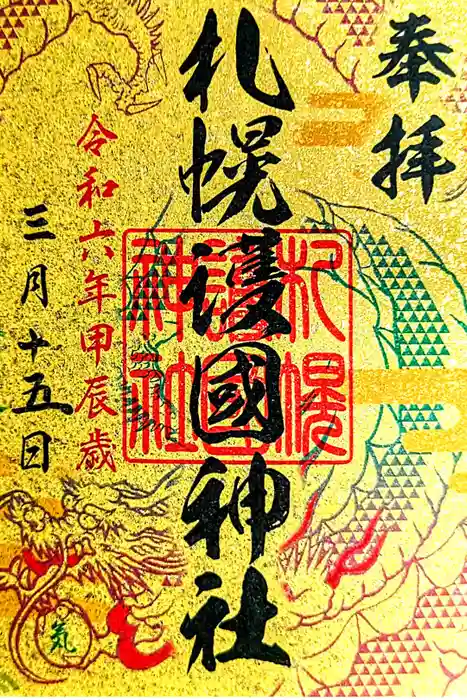 奉拝
札幌護國神社
札幌護國神社
令和六年甲辰歳
三月十五日
気